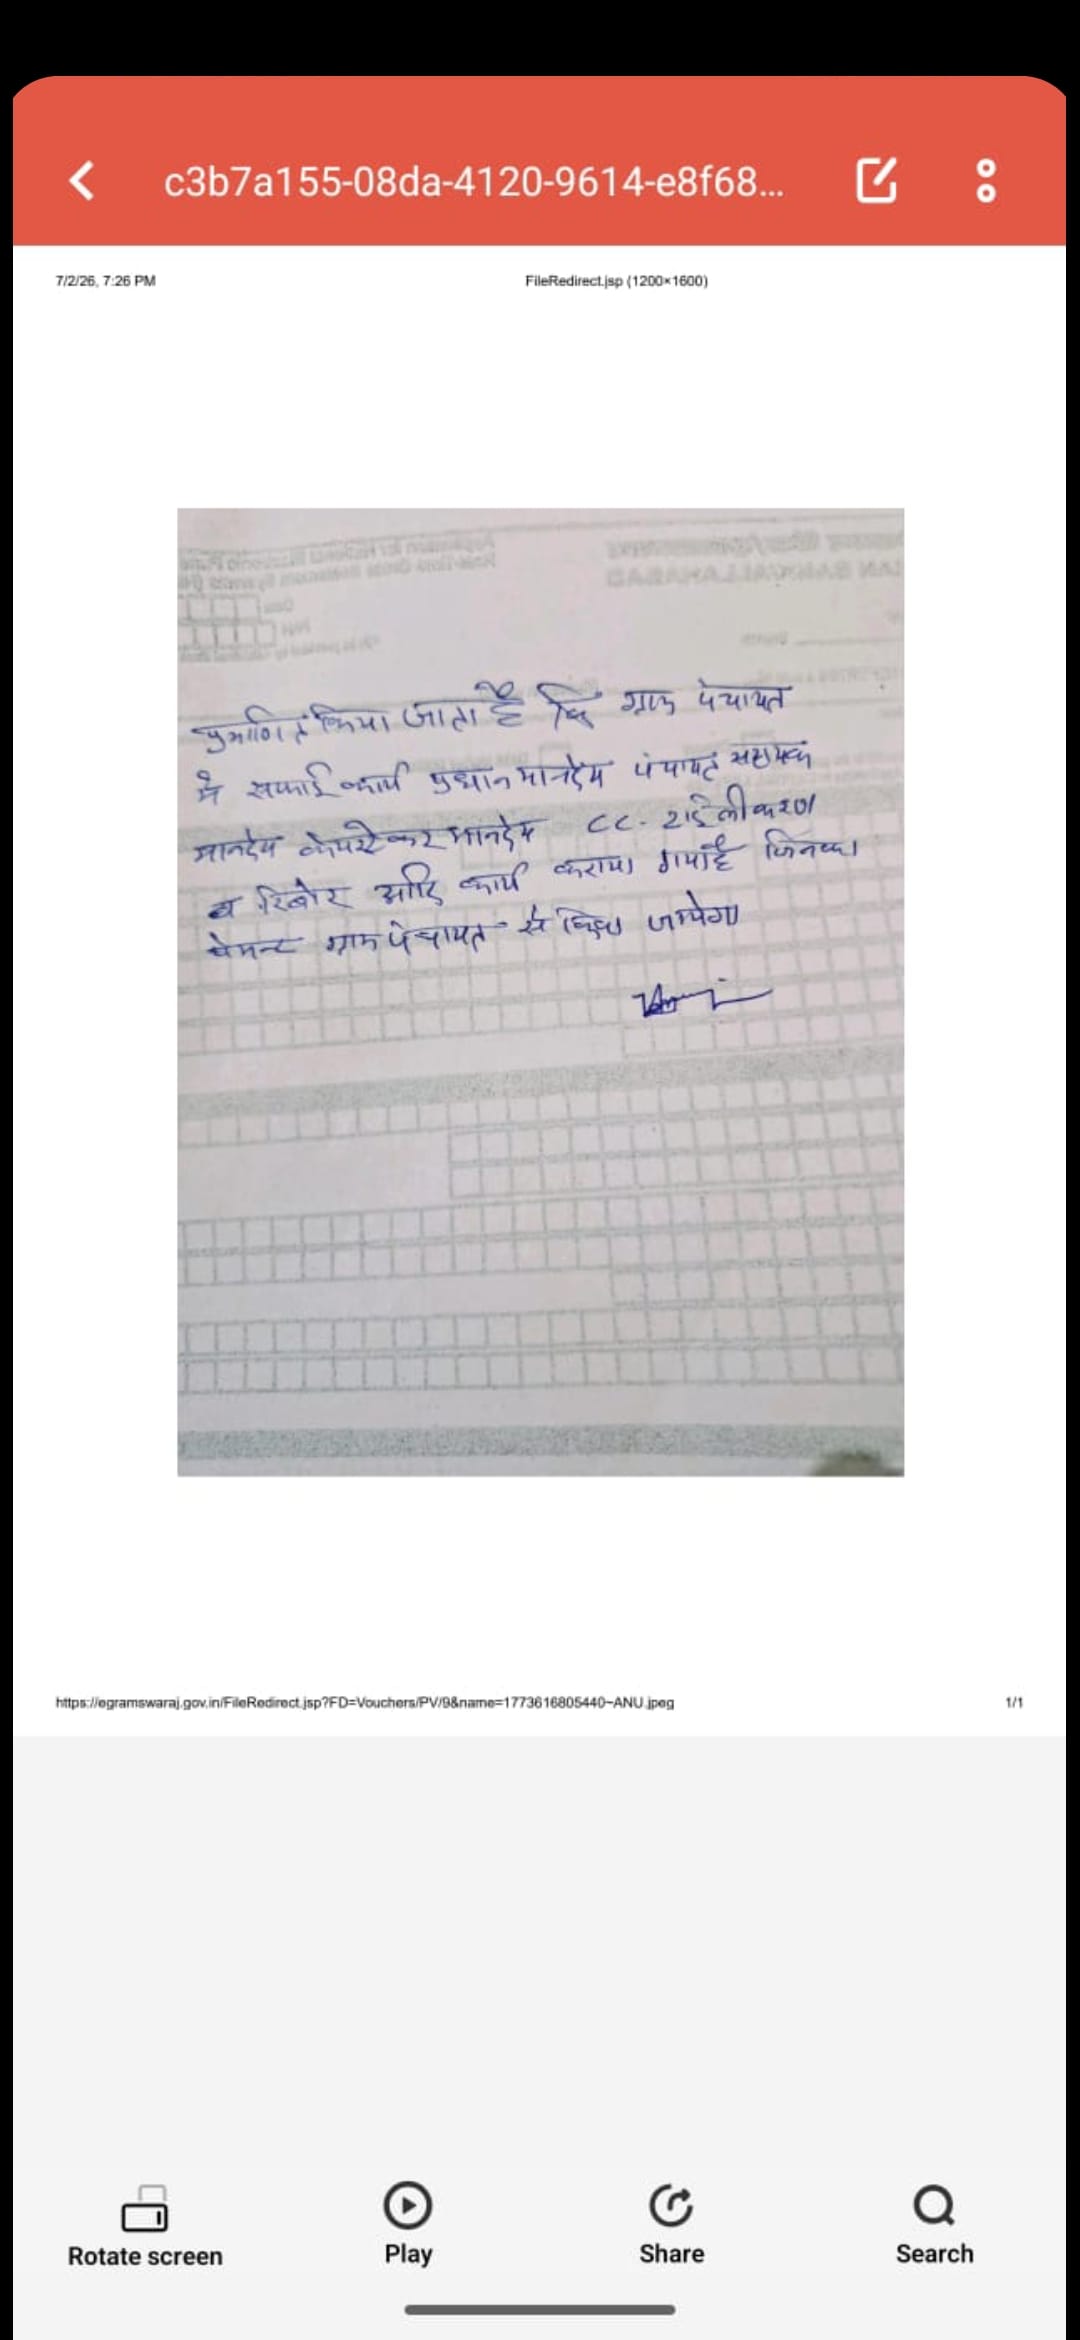 c3b7a155-08da-4120-9614-e8f68...
7/2/26, 7:26 PM FileRedirect.jsp (1200×1600)
प्रमाणित किया जाता है कि ग्राम पंचायत
में सफाई कार्य प्रधान मानदेय पंचायत सहायक
मानदेय केयरटेकर मानदेय CC. टाईलीकरण
व रिबोर आदि कार्य कराया गया है जिनका
पेमन्ट ग्राम पंचायत से किया जायेगा
https://egramswaraj.gov.in/FileRedirect.jsp?FD=Vouchers/PV/9&name=1773616805440~ANU.jpeg 1/1
Rotate screen Play Share Search